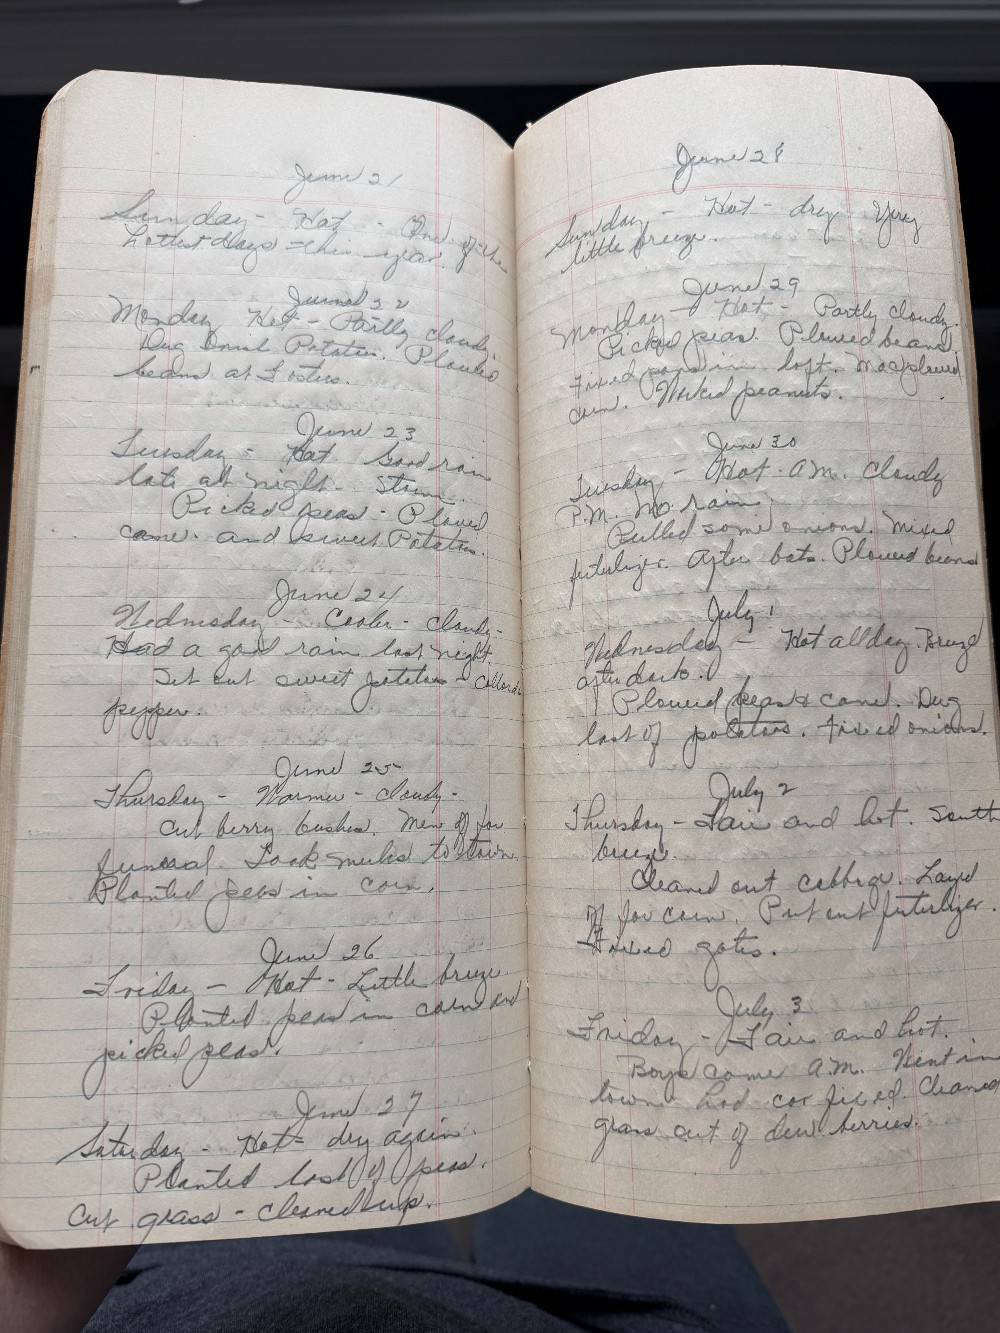 June 21
Sunday - Hot - One of the
hottest days this year.
June 22
Monday Hot - Partly cloudy.
Dug Irish Potatoes. Plowed
beans at Fosters.
June 23
Tuesday - Hot Good rain
late at night. Storm.
Picked peas - Plowed
cane. and sweet Potatoes.
June 24
Wednesday - Cooler - cloudy -
Had a good rain last night.
Set out sweet potatoes - collards
pepper.
June 25
Thursday - Warmer - cloudy -
Cut berry bushes. Men off for
funeral. Took mules to town.
Planted peas in corn.
June 26
Friday - Hot - Little breeze
Planted peas in corn and
picked peas.
June 27
Saturday - Hot - dry again.
Planted last of peas.
Cut grass - cleaned up.
June 28
Sunday - Hot - dry Very
little breeze.
June 29
Monday - Hot - Partly cloudy.
Picked peas. Plowed beans
Fixed in loft. Mac plowed
corn. Worked peanuts.
June 30
Tuesday - Hot A.M. Cloudy
P.M. No rain.
Pulled some onions. Mixed
fertilizer. After bats. Plowed beans
July 1
Wednesday - Hot all day. Breeze
after dark.
Plowed peas & cane. Dug
last of potatoes. Fixed onions.
July 2
Thursday - Fair and hot. South
breeze.
Cleaned out cabbage. Layed
off for corn. Put out fertilizer.
Fixed gates.
July 3
Friday - Fair and hot.
Boys came A.M. Went in
town had car fixed. Cleaned
grass out of dew berries.